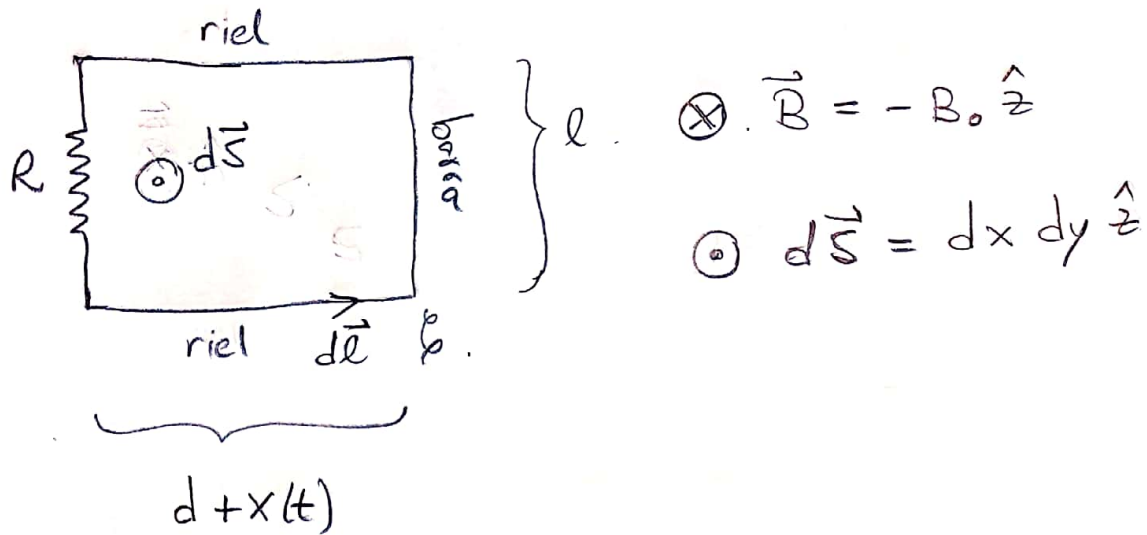 riel
R
dS⃗
barra
l.
⊗. B⃗ = - B₀ ẑ
⊙ dS⃗ = dx dy ẑ
riel
dl⃗
d + x(t)